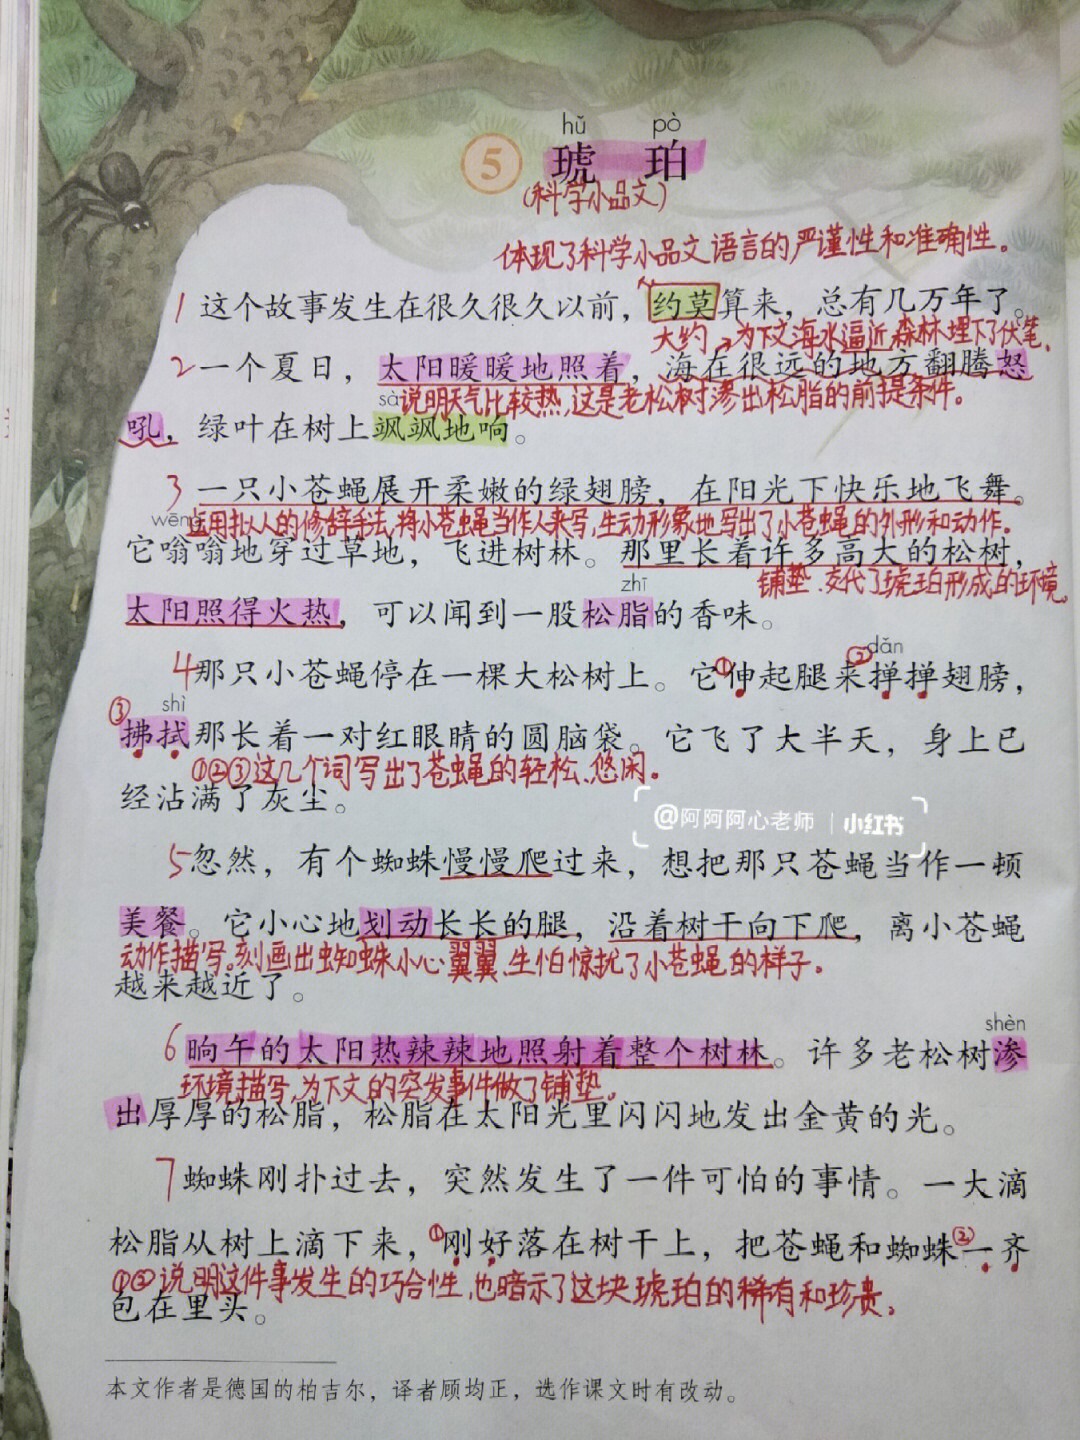 hǔ pò
5 琥珀
(科学小品文)
体现了科学小品文语言的严谨性和准确性。
1 这个故事发生在很久很久以前，约莫算来，总有几万年了。
大约 为下文海水逼近森林埋下了伏笔。
2 一个夏日，太阳暖暖地照着，海在很远的地方翻腾怒
sà 说明天气比较热，这是老松树渗出松脂的前提条件。
吼，绿叶在树上飒飒地响。
3 一只小苍蝇展开柔嫩的绿翅膀，在阳光下快乐地飞舞。
wēng 运用拟人的修辞手法，将小苍蝇当作人来写，生动形象地写出了小苍蝇的外形和动作。
它嗡嗡地穿过草地，飞进树林。那里长着许多高大的松树，
zhī 铺垫、交代了琥珀形成的环境。
太阳照得火热，可以闻到一股松脂的香味。
dǎn
4 那只小苍蝇停在一棵大松树上。它①伸起腿来②掸掸翅膀，
shì
③拂拭那长着一对红眼睛的圆脑袋。它飞了大半天，身上已
①②③这几个词写出了苍蝇的轻松、悠闲。
经沾满了灰尘。
@阿阿阿心老师 | 小红书
5 忽然，有个蜘蛛慢慢爬过来，想把那只苍蝇当作一顿
美餐。它小心地划动长长的腿，沿着树干向下爬，离小苍蝇
动作描写。刻画出蜘蛛小心翼翼、生怕惊扰了小苍蝇的样子。
越来越近了。
shèn
6 晌午的太阳热辣辣地照射着整个树林。许多老松树渗
环境描写，为下文的突发事件做了铺垫。
出厚厚的松脂，松脂在太阳光里闪闪地发出金黄的光。
7 蜘蛛刚扑过去，突然发生了一件可怕的事情。一大滴
松脂从树上滴下来，①刚好落在树干上，把苍蝇和蜘蛛②一齐
①②说明这件事发生的巧合性，也暗示了这块琥珀的稀有和珍贵。
包在里头。
本文作者是德国的柏吉尔，译者顾均正，选作课文时有改动。